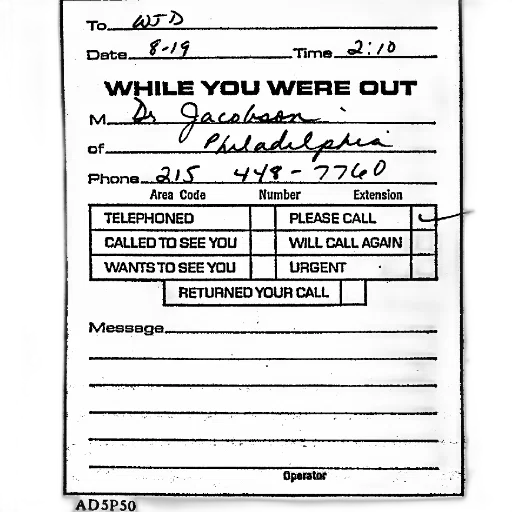 To WJD
Date 8-19 Time 2:10
WHILE YOU WERE OUT
M Dr Jacobson
of Philadelphia
Phone 215 448-7760
Area Code Number Extension
TELEPHONED PLEASE CALL ✓
CALLED TO SEE YOU WILL CALL AGAIN
WANTS TO SEE YOU URGENT
RETURNED YOUR CALL
Message
Operator
AD5P50